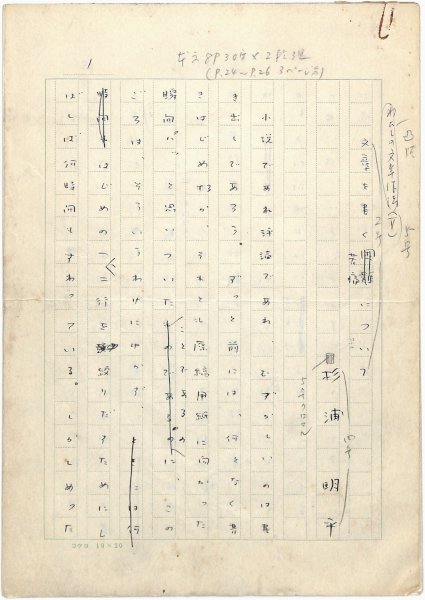 1
(P.24〜P.26 3ページ分)
わたしの文章作法(V)
5号
文章を書く苦痛について
2号
杉浦明平
四号
小説であれ評論であれ、むずかしいのは書
き出しであろう。ずっと前には、何となく書
きはじめたか、それとも原稿用紙に向かった
瞬間、パッと思いついたことであるのに、この
ごろは、そういうわけにゆかず、
はじめの一、二行を絞りだすためにし
ばしば何時間もすわっている。しかし
コクヨ 19×20